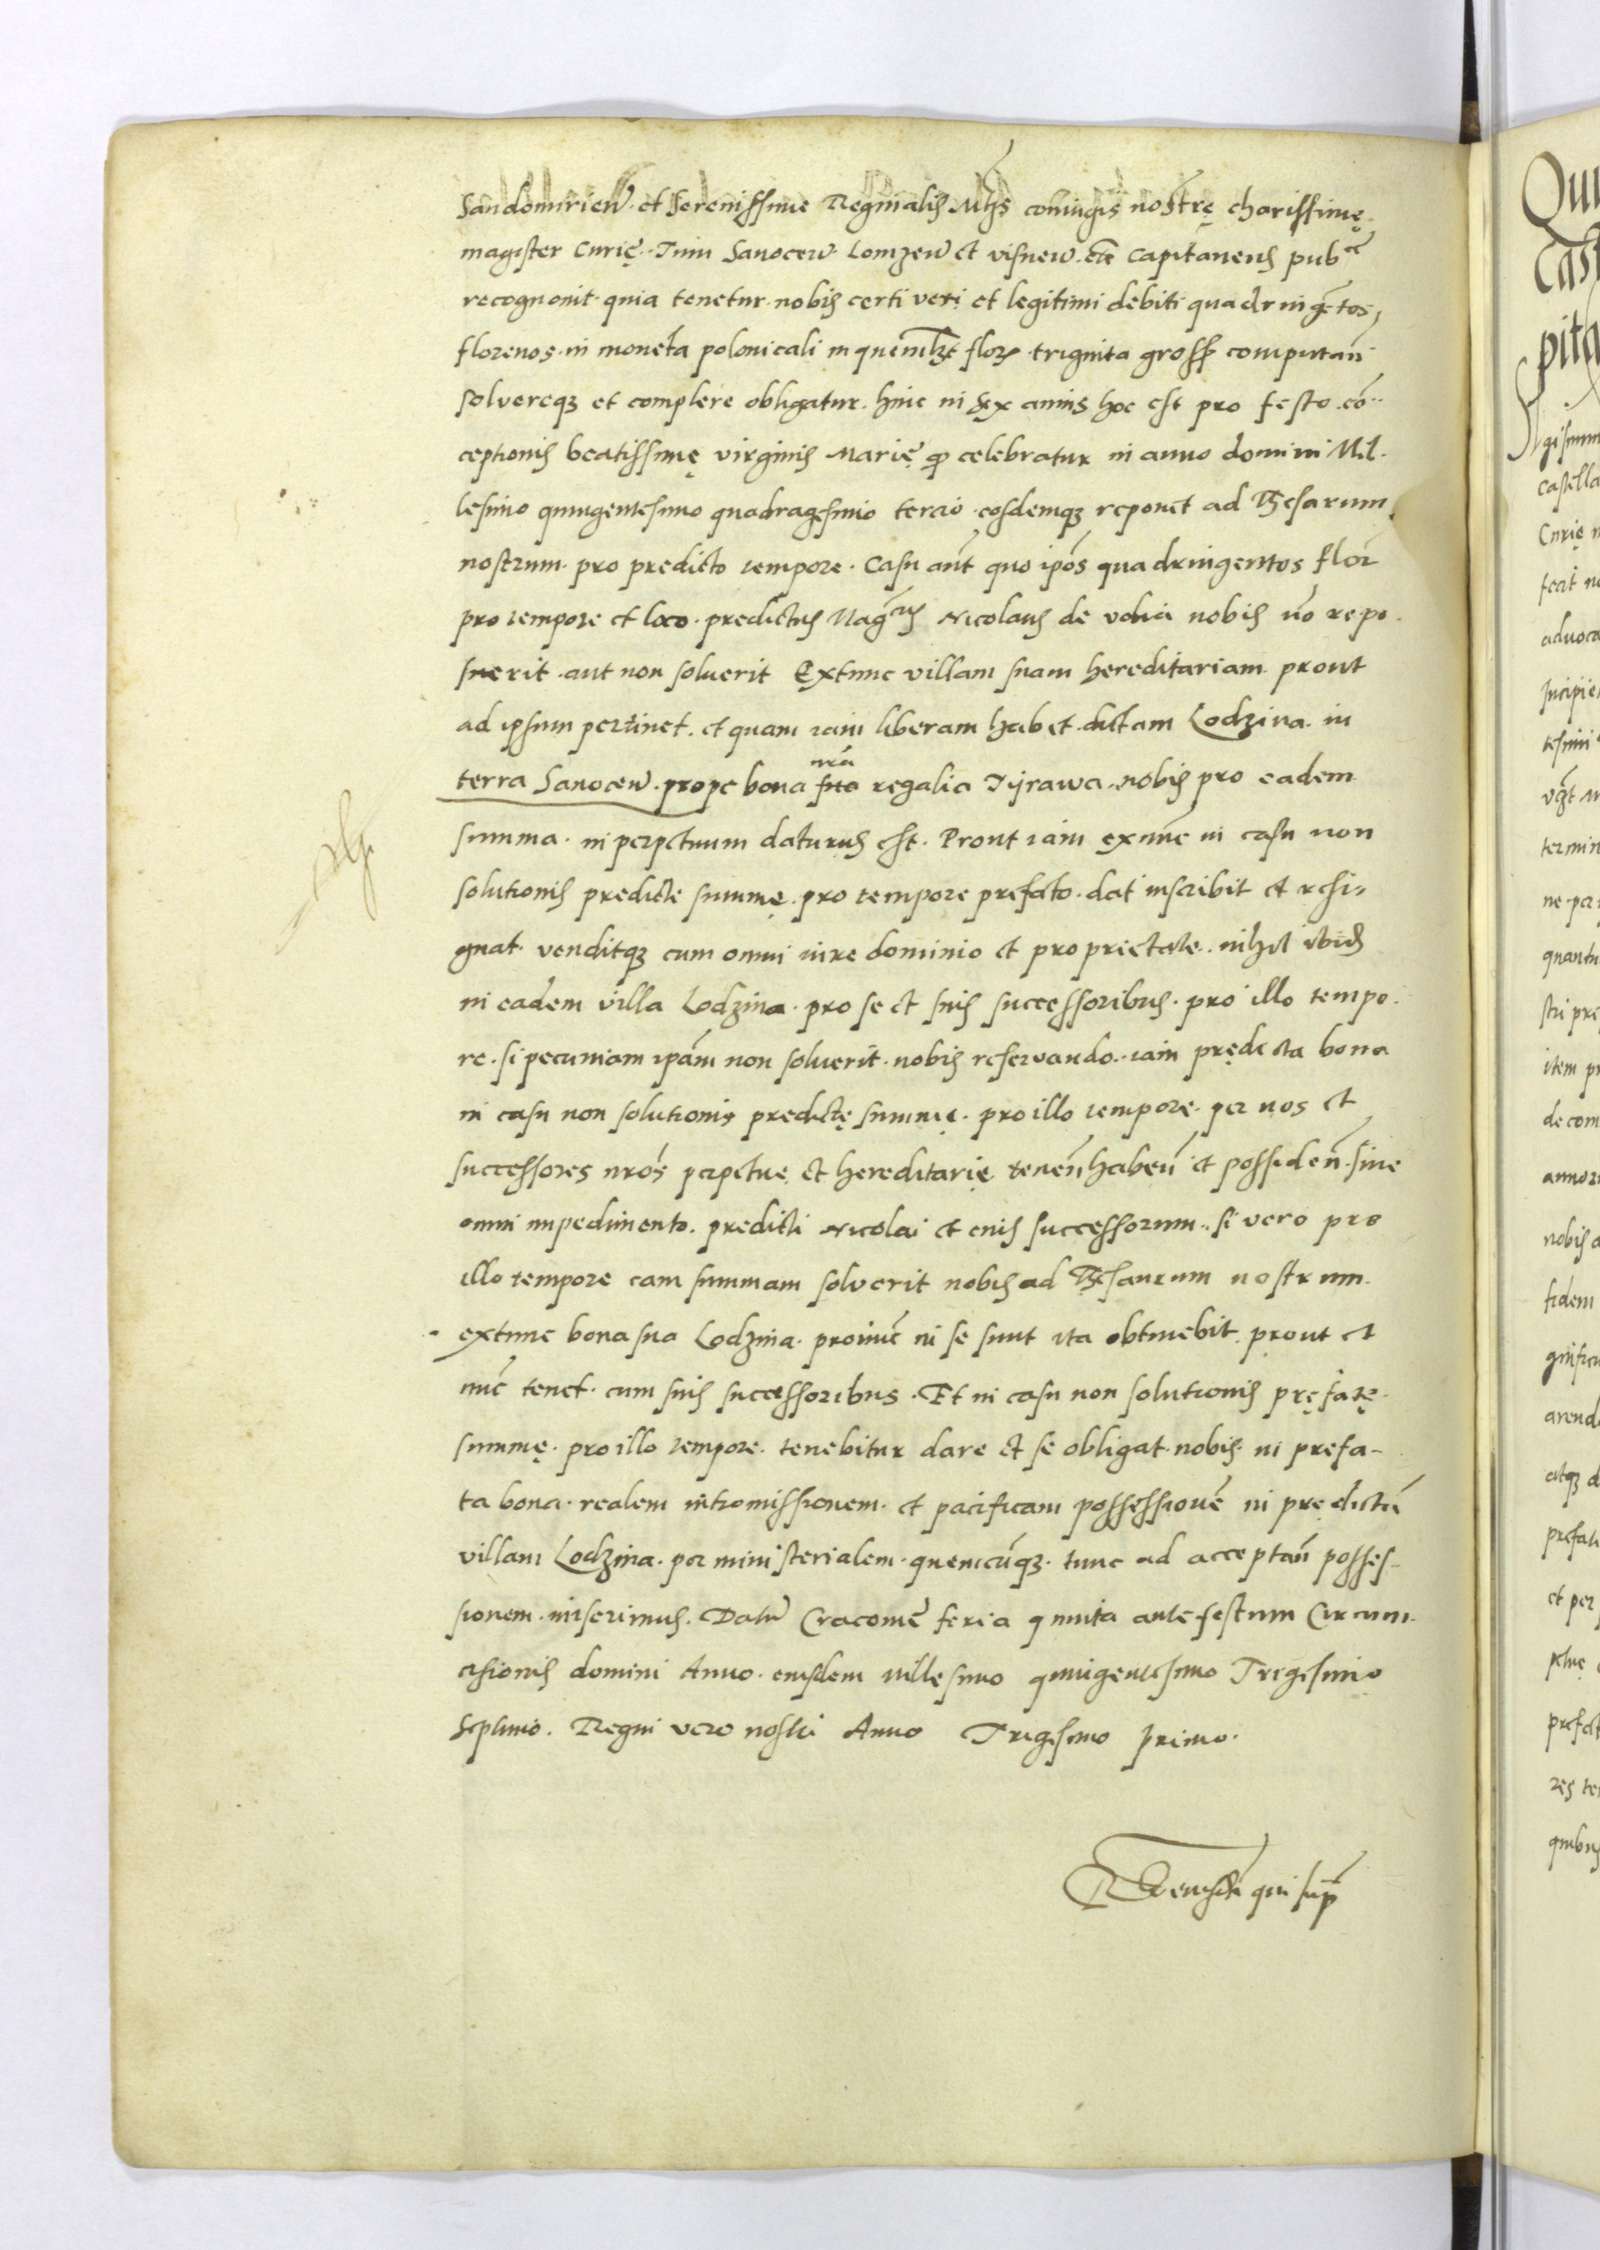 Sandomirien̄. et Serenissime Reginalis Mtis coniugis nostrę charissimę.
magister Curię. Tum Sanocen̄ Lomzen̄ et visnen̄. etc̄ Capitaneus pubce
recognouit. quia tenetur. nobis certi veri et legitimi debiti quadringētos,
florenos. in moneta polonicali in quemlꝫt flor. triginta gross computan̄
soluereqꝫ et complere obligatur. hinc in sex annis hoc est pro festo. cō-
ceptionis beatissimę virginis Marię qd celebratur in anno domini Mil-
lesimo quingentesimo quadragesimo tercio. eosdemqꝫ reponet ad Thesarum
nostrum. pro predicto tempore. Casu aūt quo ipōs quadringentos flor̄
pro tempore et loco. predictus Magcus Nicolaus de vodia nobis nō repo.
suerit. aut non soluerit Extunc villam suam hereditariam prout
ad ipsum pertinet. et quam iam liberam habet. dictam Lodzina. in
terra Sanocen̄. prope bona sua nrā regalia Tyrawa. nobis pro eadem
summa. in perpetuum daturus est. Prout iam extūc in casu non
solutionis predicte summę. pro tempore prefato. dat inscribit et resi-
gnat. venditqꝫ cum omni iure dominio et proprietate. nihil ibid̄
in eadem villa Lodzina. pro se et suis successoribus. pro illo tempo.
re. si pecuniam ipām non soluerit. nobis reseruando. iam prędicta bona
in casu non solutionis predictę summę. pro illo tempore. per nos et
successores nrōs perpetue et hereditarię tenen̄ haben̄ et possiden̄. sine
omni impedimento. predicti Nicolai et eius successorum. si vero pro
illo tempore eam summam soluerit nobis ad Thesaurum nostrum.
extunc bona sua Lodzina. prout in se sunt ita obtinebit. prout et
nūc tenet. cum suis successoribus. Et in casu non solutionis pręfatę.
summę. pro illo tempore. tenebitur dare et se obligat nobis. in prefa-
ta bona. realem intromissionem. et pacificam possessionē in prędictā
villam Lodzina. per ministerialem. quemcūqꝫ. tunc ad acceptan̄ posses-
sionem. miserimus. Datū Cracouię feria quinta ante festum Circum-
cisionis domini Anno. eiusdem millesimo quingentesimo Trigesimo
Septimo. Regni vero nostri Anno Trigesimo primo.
qui sup̄